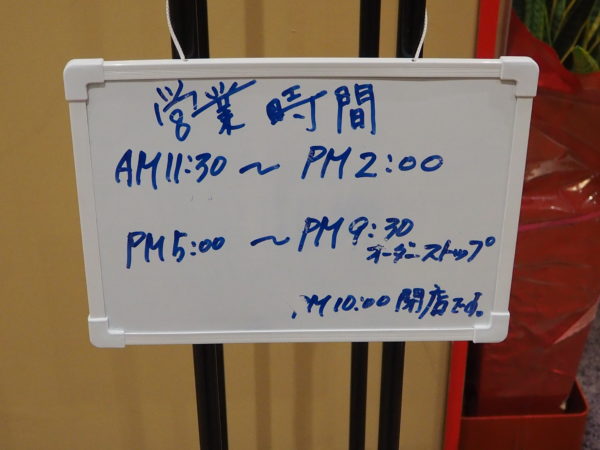 営業時間
AM11:30 ~ PM2:00
PM5:00 ~ PM9:30
オーダーストップ
PM10:00 閉店です。